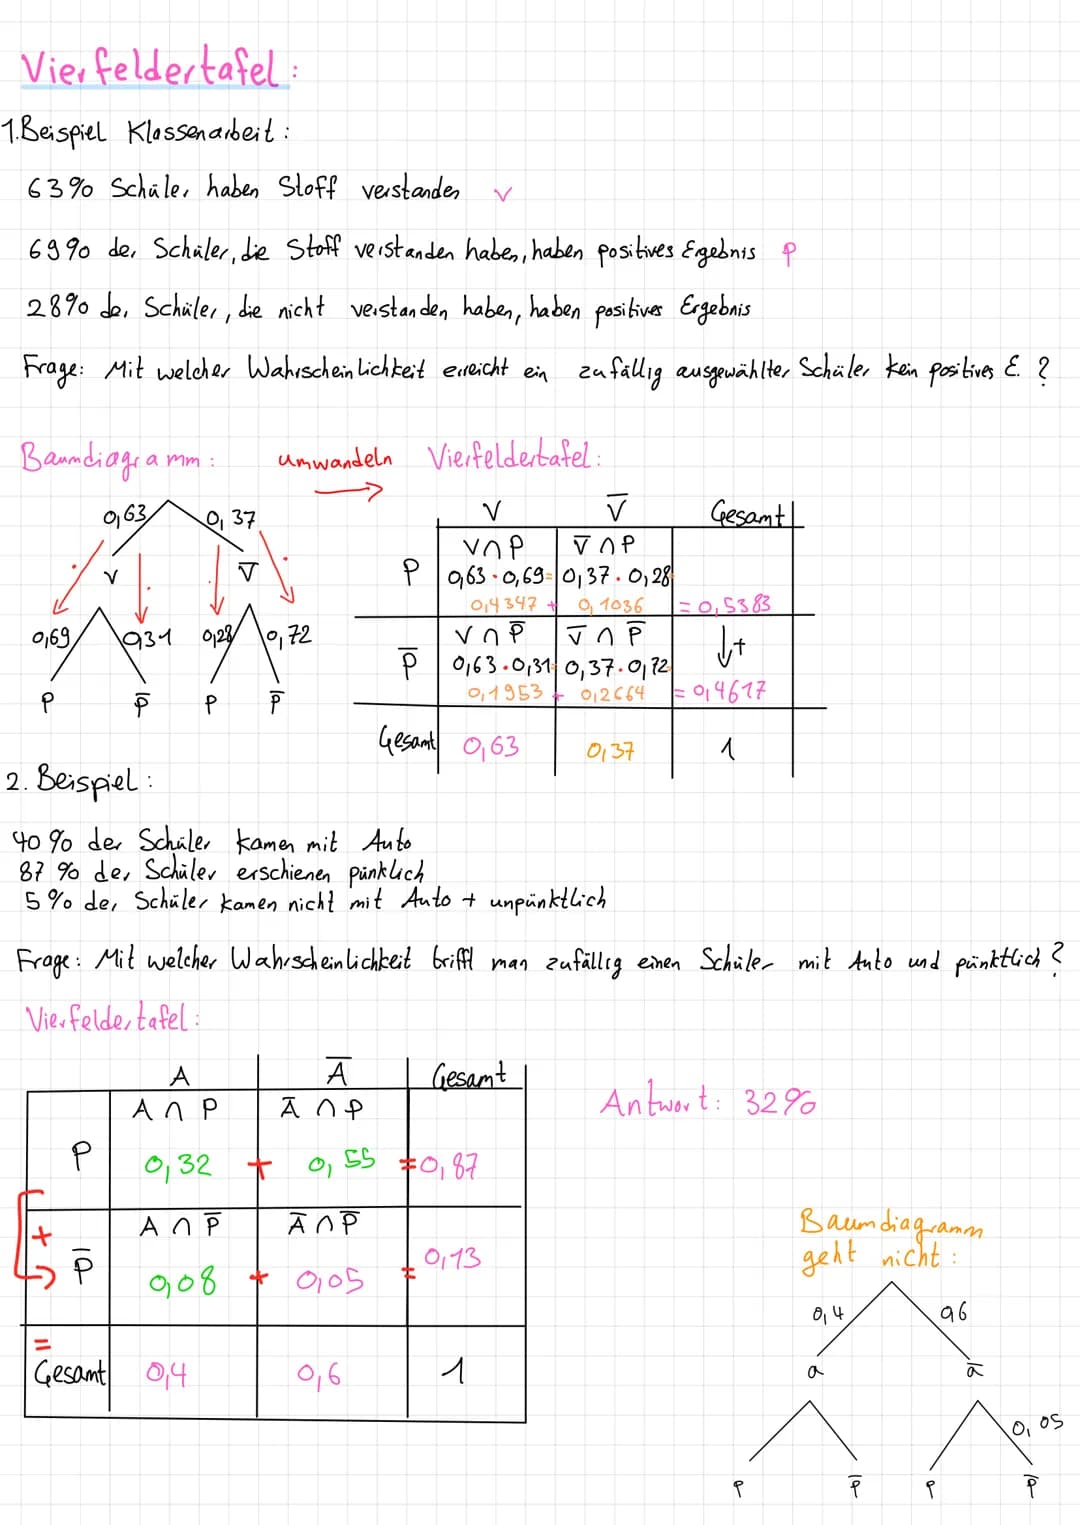 Vierfeldertafel:
1. Beispiel Klassenarbeit:
63% Schüler haben Stoff verstanden V
69% der Schüler, die Stoff verstanden haben, haben positives Ergebnis P
28% der Schüler, die nicht verstanden haben, haben positives Ergebnis
Frage: Mit welcher Wahrscheinlichkeit erreicht ein zufällig ausgewählter Schüler kein positives E. ?
Baumdiagramm: umwandeln → Vierfeldertafel:
0,63 0,37
V V̅
0,69 0,31 0,28 0,72
P P̅ P P̅
V V̅ Gesamt
V∩P V̅∩P
P 0,63·0,69= 0,37·0,28
0,4347 + 0,1036 = 0,5383
V∩P̅ V̅∩P̅ ↓+
P̅ 0,63·0,31= 0,37·0,72
0,1953 + 0,2664 = 0,4617
Gesamt 0,63 0,37 1
2. Beispiel:
40% der Schüler kamen mit Auto
87% der Schüler erschienen pünklich
5% der Schüler kamen nicht mit Auto + unpünktlich
Frage: Mit welcher Wahrscheinlichkeit trifft man zufällig einen Schüler mit Auto und pünktlich?
Vierfeldertafel:
A A̅ Gesamt
A∩P A̅∩P
P 0,32 + 0,55 = 0,87
+ A∩P̅ A̅∩P̅
P̅ 0,08 + 0,05 = 0,13
=
Gesamt 0,4 0,6 1
Antwort: 32%
Baumdiagramm
geht nicht:
0,4 0,6
a a̅
0,05
P P̅ P P̅